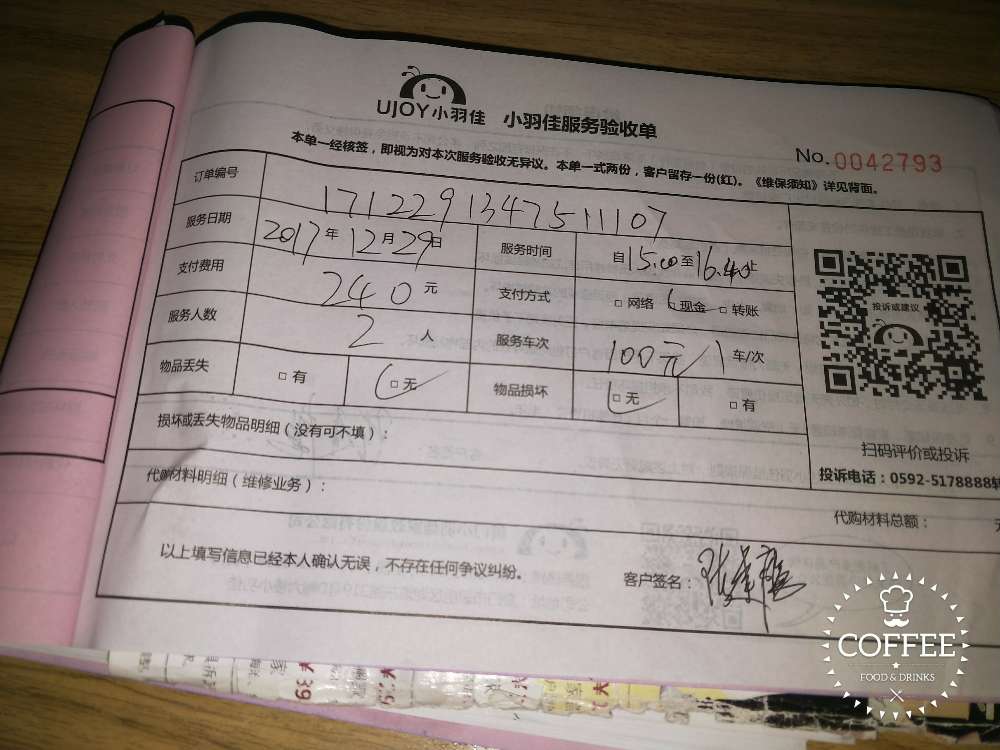 UJOY小羽佳 小羽佳服务验收单
No.0042793
本单一经核签，即视为对本次服务验收无异议。本单一式两份，客户留存一份(红)。《维保须知》详见背面。
订单编号 171229134751107
服务日期 2017年12月29日 服务时间 自15.00至16.40止
支付费用 240元 支付方式 □ 网络 □ 现金 □ 转账
服务人数 2人 服务车次 100元/1车/次
物品丢失 □ 有 □ 无 物品损坏 □ 无 □ 有
投诉或建议
扫码评价或投诉
投诉电话：0592-5178888转
损坏或丢失物品明细（没有可不填）：
代购材料明细（维修业务）：
代购材料总额：
以上填写信息已经本人确认无误，不存在任何争议纠纷。
客户签名：
COFFEE
FOOD & DRINKS